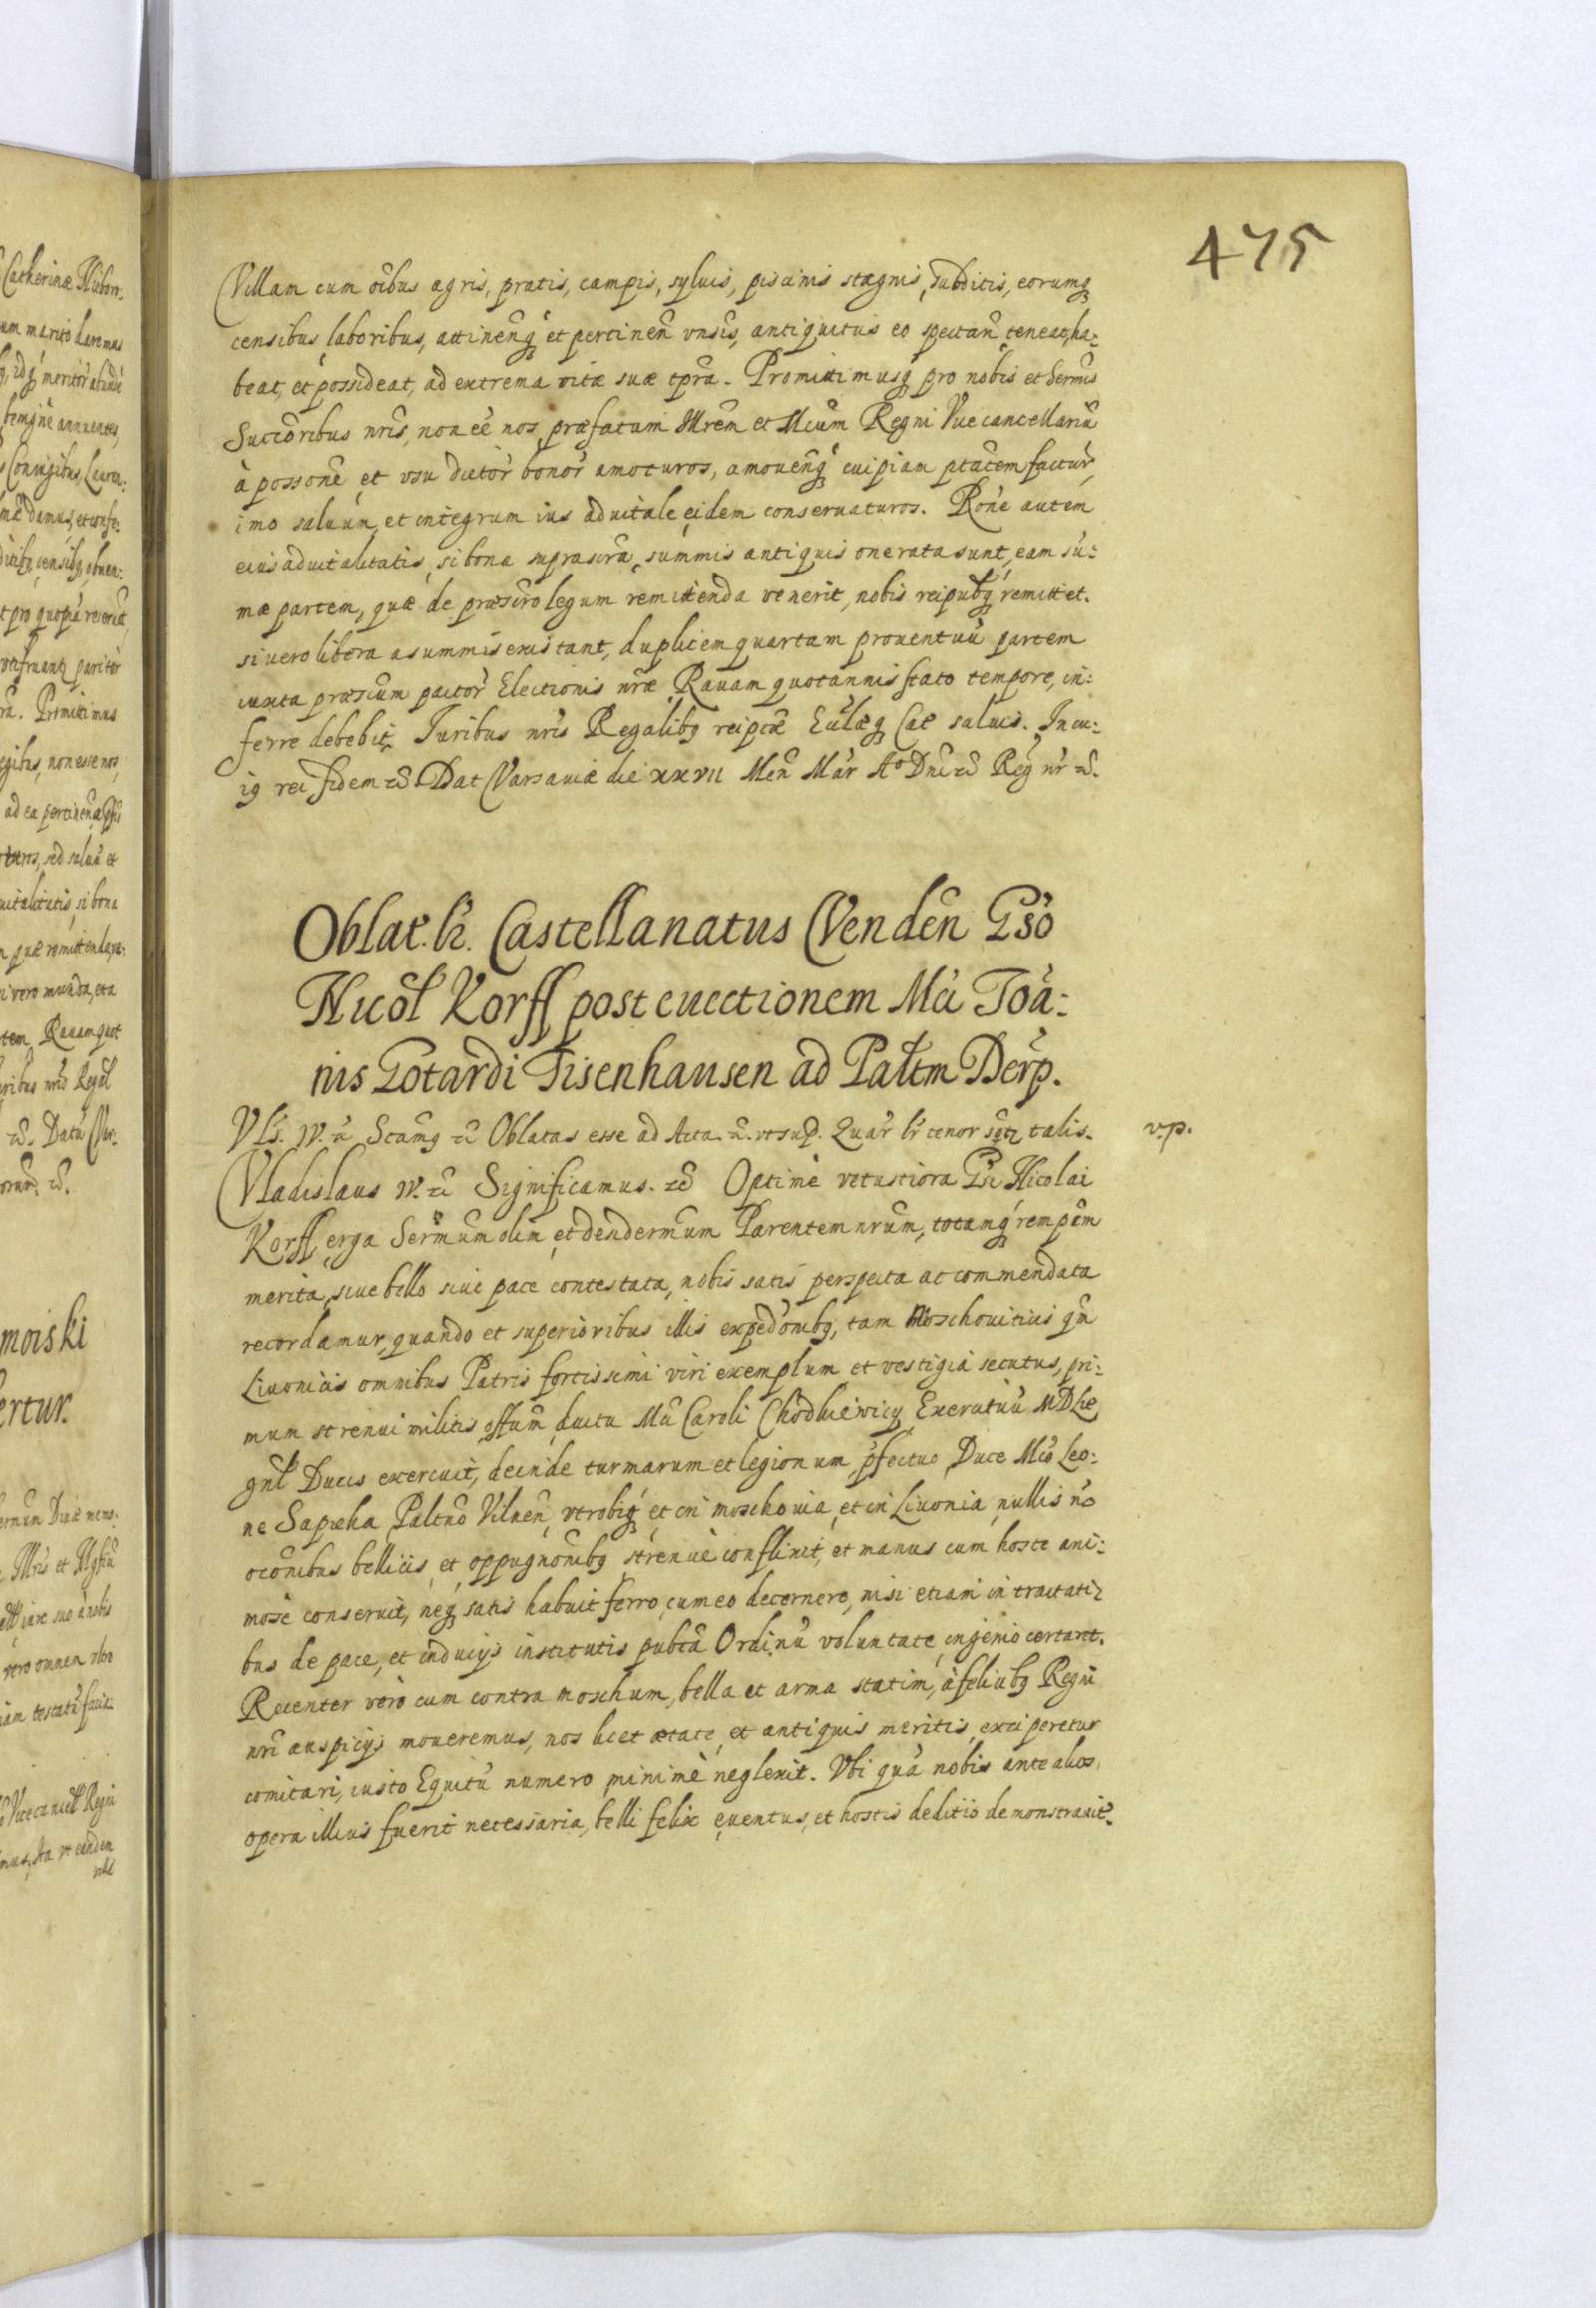 475
Villam cum oībus agris, pratis, campis, syluis, piscinis stagnis, subditis, eorumq́
censibus, laboribus, attineñq́ et pertineñ vnsīs, antiquitus eo spectañ teneat, ha:
beat, et possideat, ad extrema vitæ suæ tpra. Promittimusq́ pro nobis et Sermīs
Succoribus nrīs, non eē nos præfatum Illrem et Mcum Regni Vicecancellariū
à possone et vsu dictor bonor amoturos, amoueñq́ cuipiam ptatem factur,
imo saluum, et integrum ius aduitale eidem conseruaturos. Rone autem
eius aduitalitatis, si bona suprascra, summis antiquis onerata sunt, eam su:
mæ partem, quæ de præscro legum remittenda venerit, nobis reipubq́ remittet.
si vero libera a summis existant, duplicem quartam prouentuū partem
iuxta præscum pactor Electionis nræ Rauam quotannis stato tempore, in:
ferre debebit. Iuribus nrīs Regalibq reipcæ Eclæq Cat saluis. In cu:
iq rei fidem etc. Dat Varsauiæ die xxvii Meñ Mar Aº Dni etc Reg nr etc.
Oblat. lr. Castellanatus Vendeñ Gso
Nicol Korff post euectionem Mci Ioā:
nis Gotardi Tisenhausen ad Paltm Derp.
Vls. IV. etc Scamq etc Oblatas esse ad Acta. etc. vt sup. Quar lr tenor sqtr talis.
v.p.
Vladislaus IV. etc Significamus. etc Optimè vetustiora Gsi Nicolai
Korff, erga Sermum olim, et dendermum Parentem nrum, totamq́ rempcm
merita, siue bello siue pace contestata, nobis satis perspecta ac commendata
recordamur, quando et superioribus illis expedonibq, tam Moschouiticis qm
Liuonicis omnibus Patris fortissimi viri exemplum et vestigia secutus, pri:
mum strenui militis offum, ductu Mci Caroli Chodkiewicz Exercituū MDLæ
gnl Ducis exercuit, deinde turmarum et legionum pfectus, Duce Mco Leo:
ne Sapieha Paltno Vilneñ, vtrobiq́ et in moschouia, et in Liuonia, nullis no
oconibus bellicis, et oppugnonibq strenuè conflixit, et manus cum hoste ani:
mosè conseruit, neq satis habuit ferro, cum eo decernere, nisi etiam in tractati:
bus de pace, et inducijs institutis pubca Ordinū voluntate, ingenio certaret.
Recenter vero cum contra moschum, bella et arma statim, à felicibq Regni
nri auspicijs moueremus, nos licet ætate, et antiquis meritis, exciperetur
comitari, iusto Equitū numero, minimè neglexit. Vbi quà nobis ante alios,
opera illius fuerit necessaria, belli felix euentus, et hostis deditio demonstrauit.